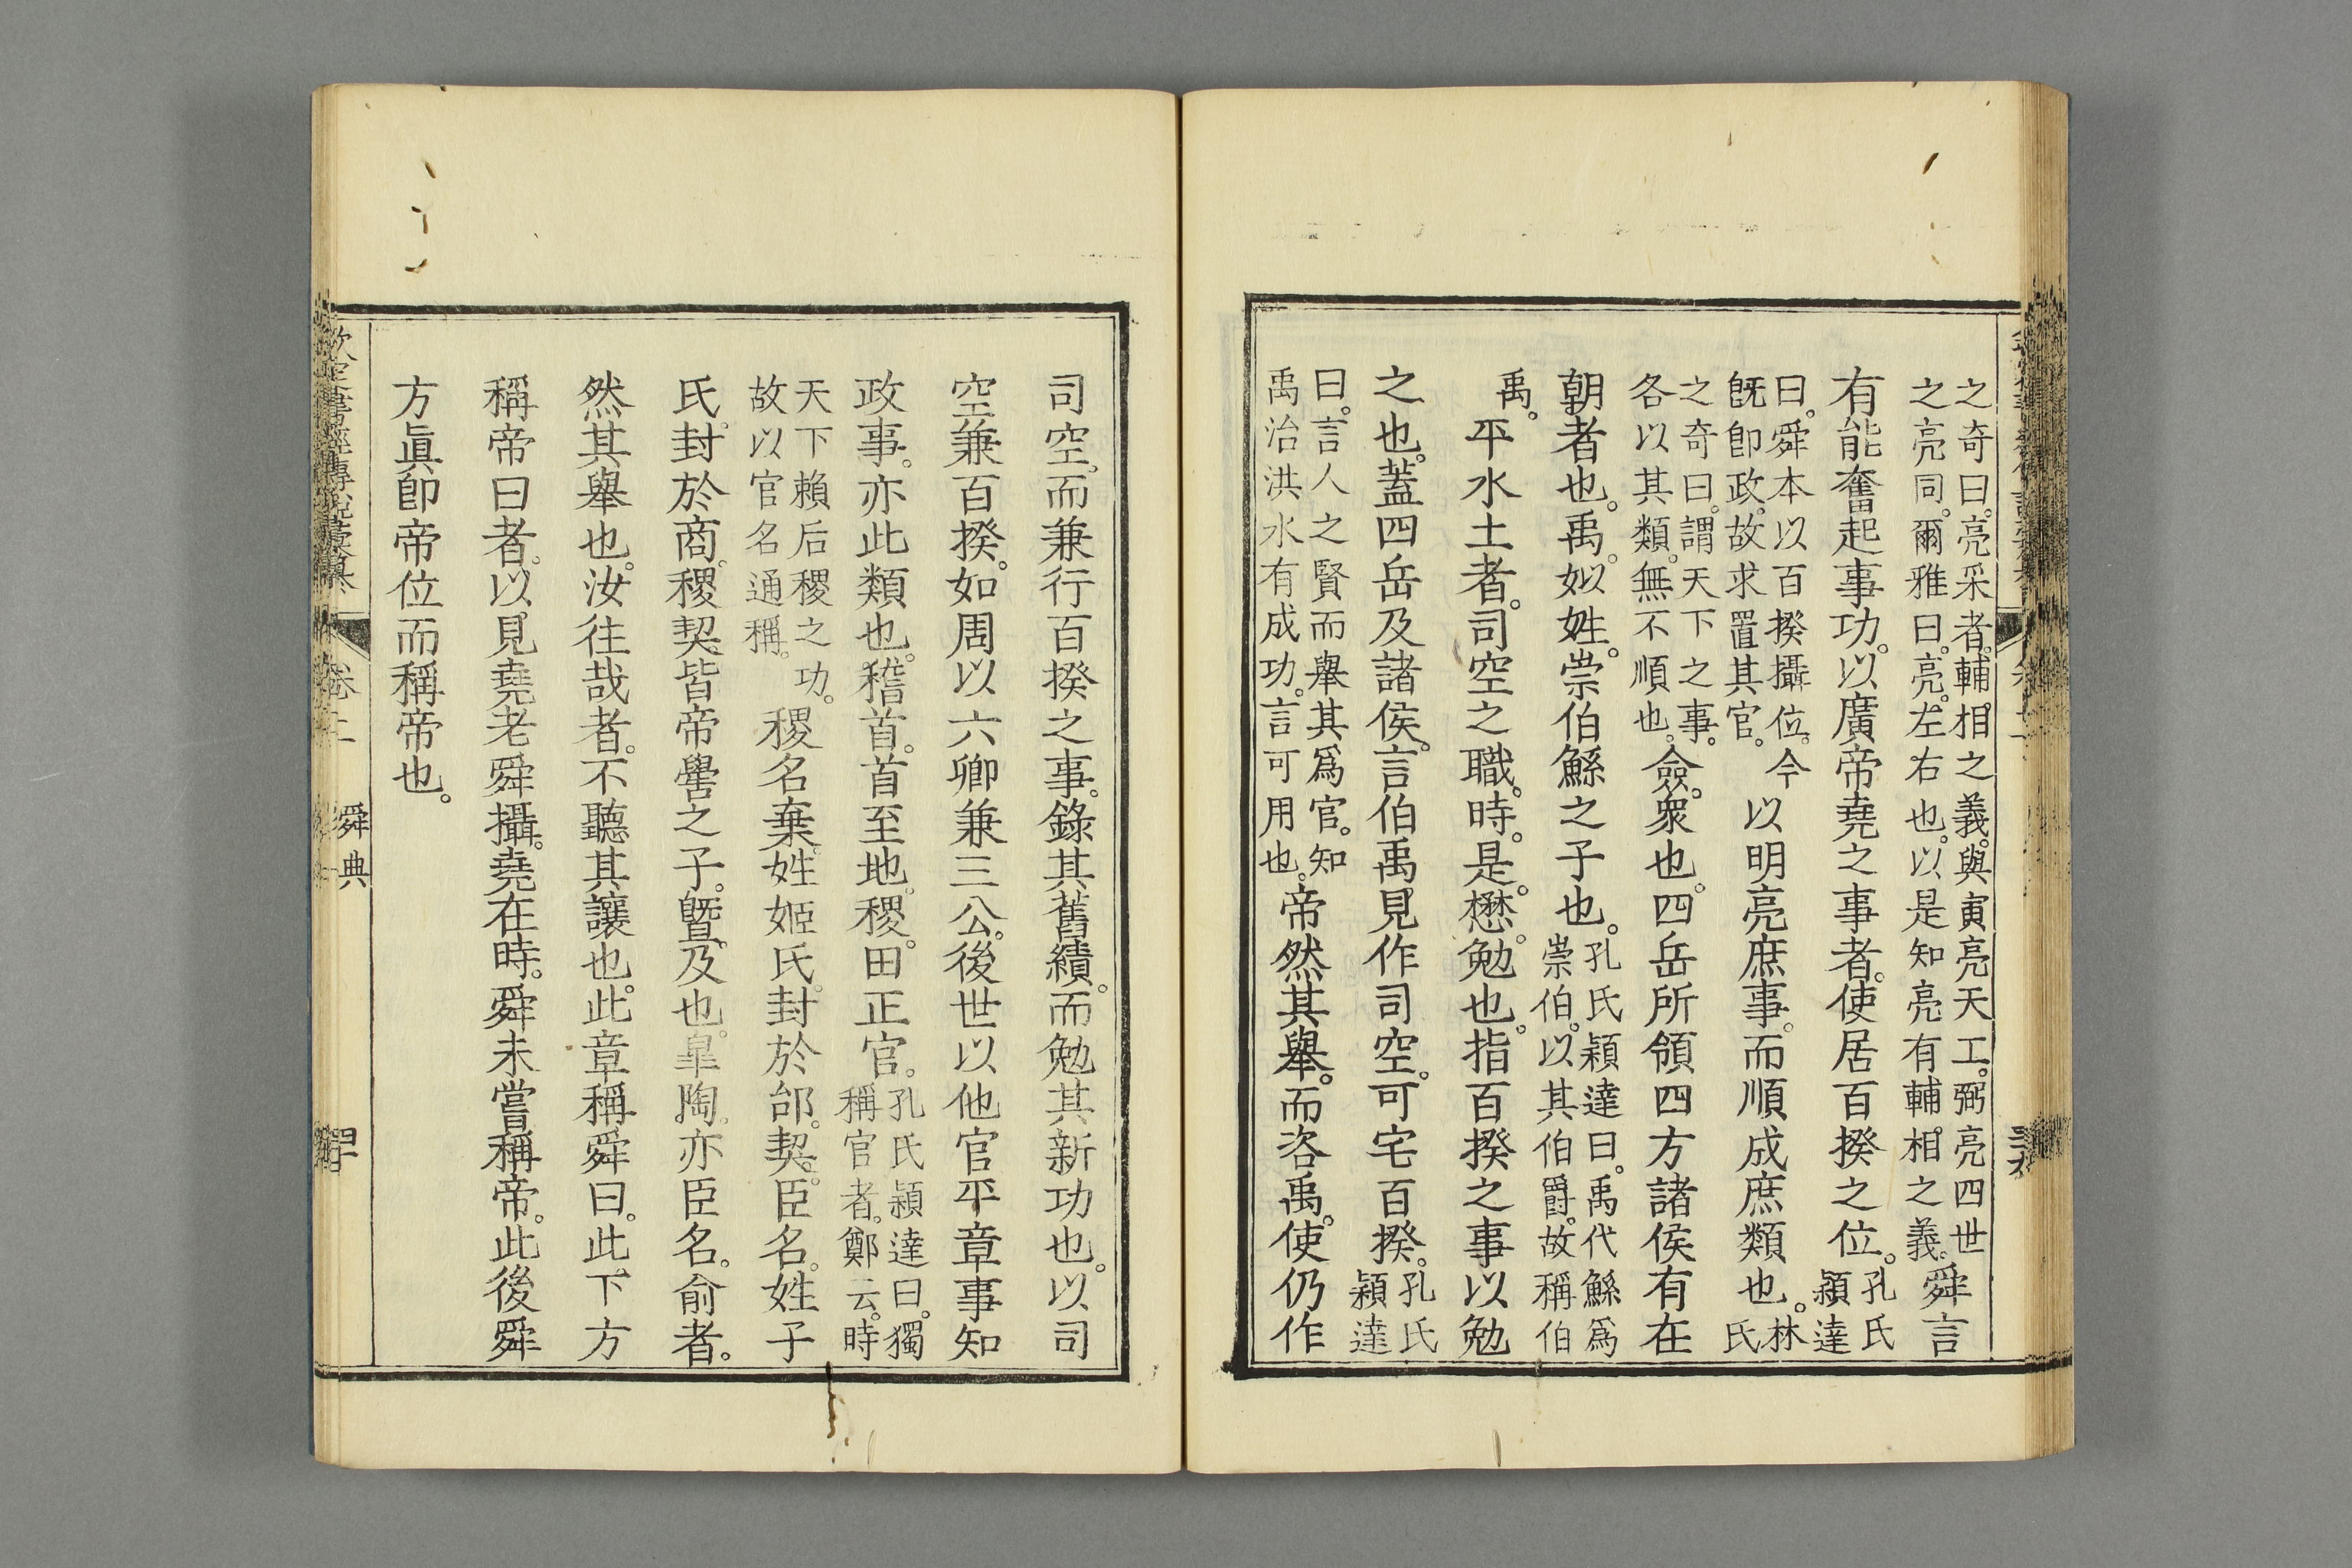 之奇曰。亮采者。輔相之義。與寅亮天工。弼亮四世
之亮同。爾雅曰。亮。左右也。以是知亮有輔相之義。舜言
有能奮起事功。以廣帝堯之事者。使居百揆之位。孔氏
穎達
曰。舜本以百揆攝位。今
旣卽政。故求置其官。以明亮庶事。而順成庶類也。林
氏
之奇曰。謂天下之事。
各以其類。無不順也。僉。衆也。四岳所領四方諸侯有在
朝者也。禹。姒姓。崇伯鯀之子也。孔氏穎達曰。禹代鯀爲
崇伯。以其伯爵。故稱伯
禹。平水土者。司空之職。時。是。懋。勉也。指百揆之事以勉
之也。蓋四岳及諸侯。言伯禹見作司空。可宅百揆。孔氏
穎達
曰。言人之賢而舉其爲官。知
禹治洪水有成功。言可用也。帝然其舉。而咨禹。使仍作
司空。而兼行百揆之事。錄其舊績。而勉其新功也。以司
空兼百揆。如周以六卿兼三公。後世以他官平章事知
政事。亦此類也。稽首。首至地。稷。田正官。孔氏穎達曰。獨
稱官者。鄭云。時
天下賴后稷之功。
故以官名通稱。稷名棄。姓姬氏。封於邰。契。臣名。姓子
氏。封於商。稷契皆帝嚳之子。曁。及也。皐陶。亦臣名。俞者。
然其舉也。汝往哉者。不聽其讓也。此章稱舜曰。此下方
稱帝曰者。以見堯老舜攝。堯在時。舜未嘗稱帝。此後舜
方眞卽帝位而稱帝也。
欽定書經傳說彙纂 卷二 舜典